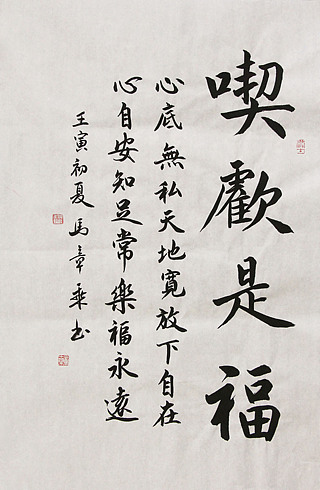 喫虧是福
心底無私天地寬放下自在
心自安知足常樂福永遠
壬寅初夏馬章乘书